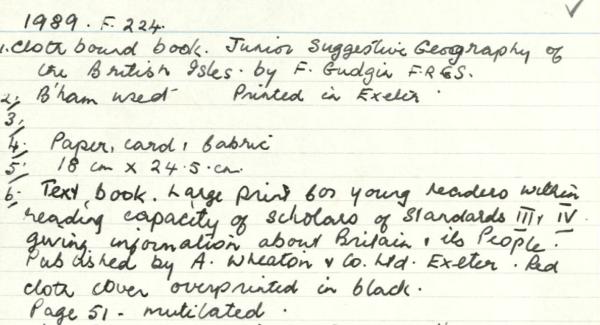 1989. F. 224.
1. Cloth bound book. Junior Suggestive Geography of
the British Isles. by F. Gudgin F.R.G.S.
2. B'ham used Printed in Exeter.
3.
4. Paper, card, fabric
5. 18 cm x 24.5 cm.
6. Text book. Large print for young readers within
reading capacity of scholars of Standards III & IV
giving information about Britain & its People.
Published by A. Wheaton & Co. Ltd. Exeter. Red
cloth cover overprinted in black.
Page 51 - mutilated.